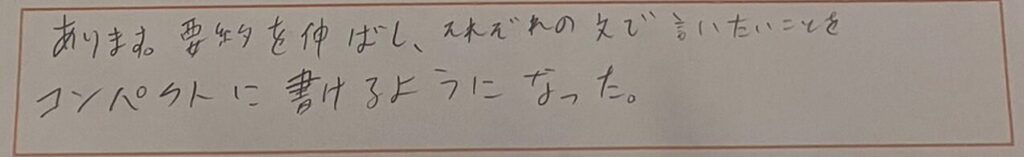 あります。要約を伸ばし、それぞれの文で言いたいことを
コンパクトに書けるようになった。